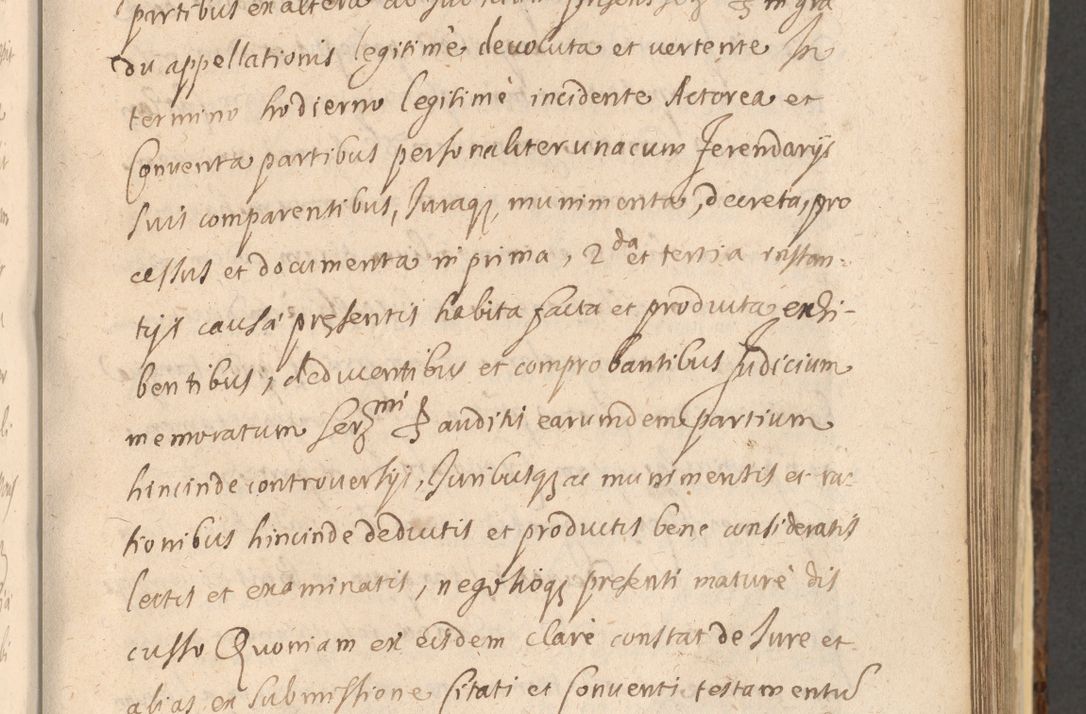 partibus ex altera ad Judicium præsens
du appellationis legitimè devoluta et vertente In
termino hodierno legitimè incidente Actorea et
Conventa partibus personaliter unacum Ferendarijs
suis comparentibus, Juraq, munimenta, decreta, pro
cessus et documenta in prima, 2da et tertia instan-
tijs causæ præsentis habita facta et producta exhi-
bentibus, deducentibus et comprobantibus Judicium
memoratum Sermi auditis earumdem partium
hincinde controversijs, Juribusq ac munimentis et ra-
tionibus hincinde deductis et productis bene consideratis
lectis et examinatis, negotioq presenti maturè dis
cusso Quoniam ex eisdem clarè constat de Jure et
alias ex submissione Citati et Conventi testamentũ